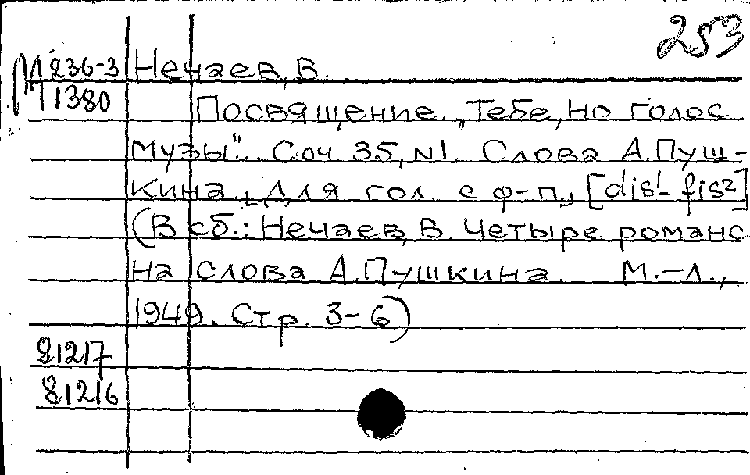 253
М 236-3 Нечаев, В.
1380 Посвящение. „Тебе, но голос
музы". Соч. 35, N1. Слова А. Пуш-
кина. Для гол. с ф-п., [dis¹- fis²]
(В сб.: Нечаев, В. Четыре романс
на слова А. Пушкина. М.-Л.,
1949. Стр. 3-6)
81217
81216